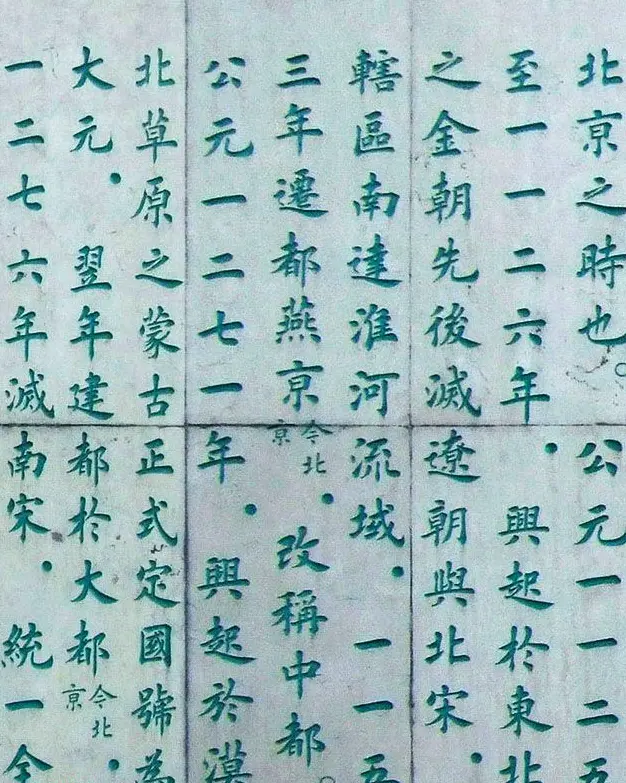 北京之時也。公元一一二五
至一一二六年．興起於東北
之金朝先後滅遼朝與北宋．
轄區南達淮河流域．一一五
三年遷都燕京今北京．改稱中都。
公元一二七一年．興起於漠
北草原之蒙古正式定國號為
大元．翌年建都於大都今北京．
一二七六年滅南宋．統一全